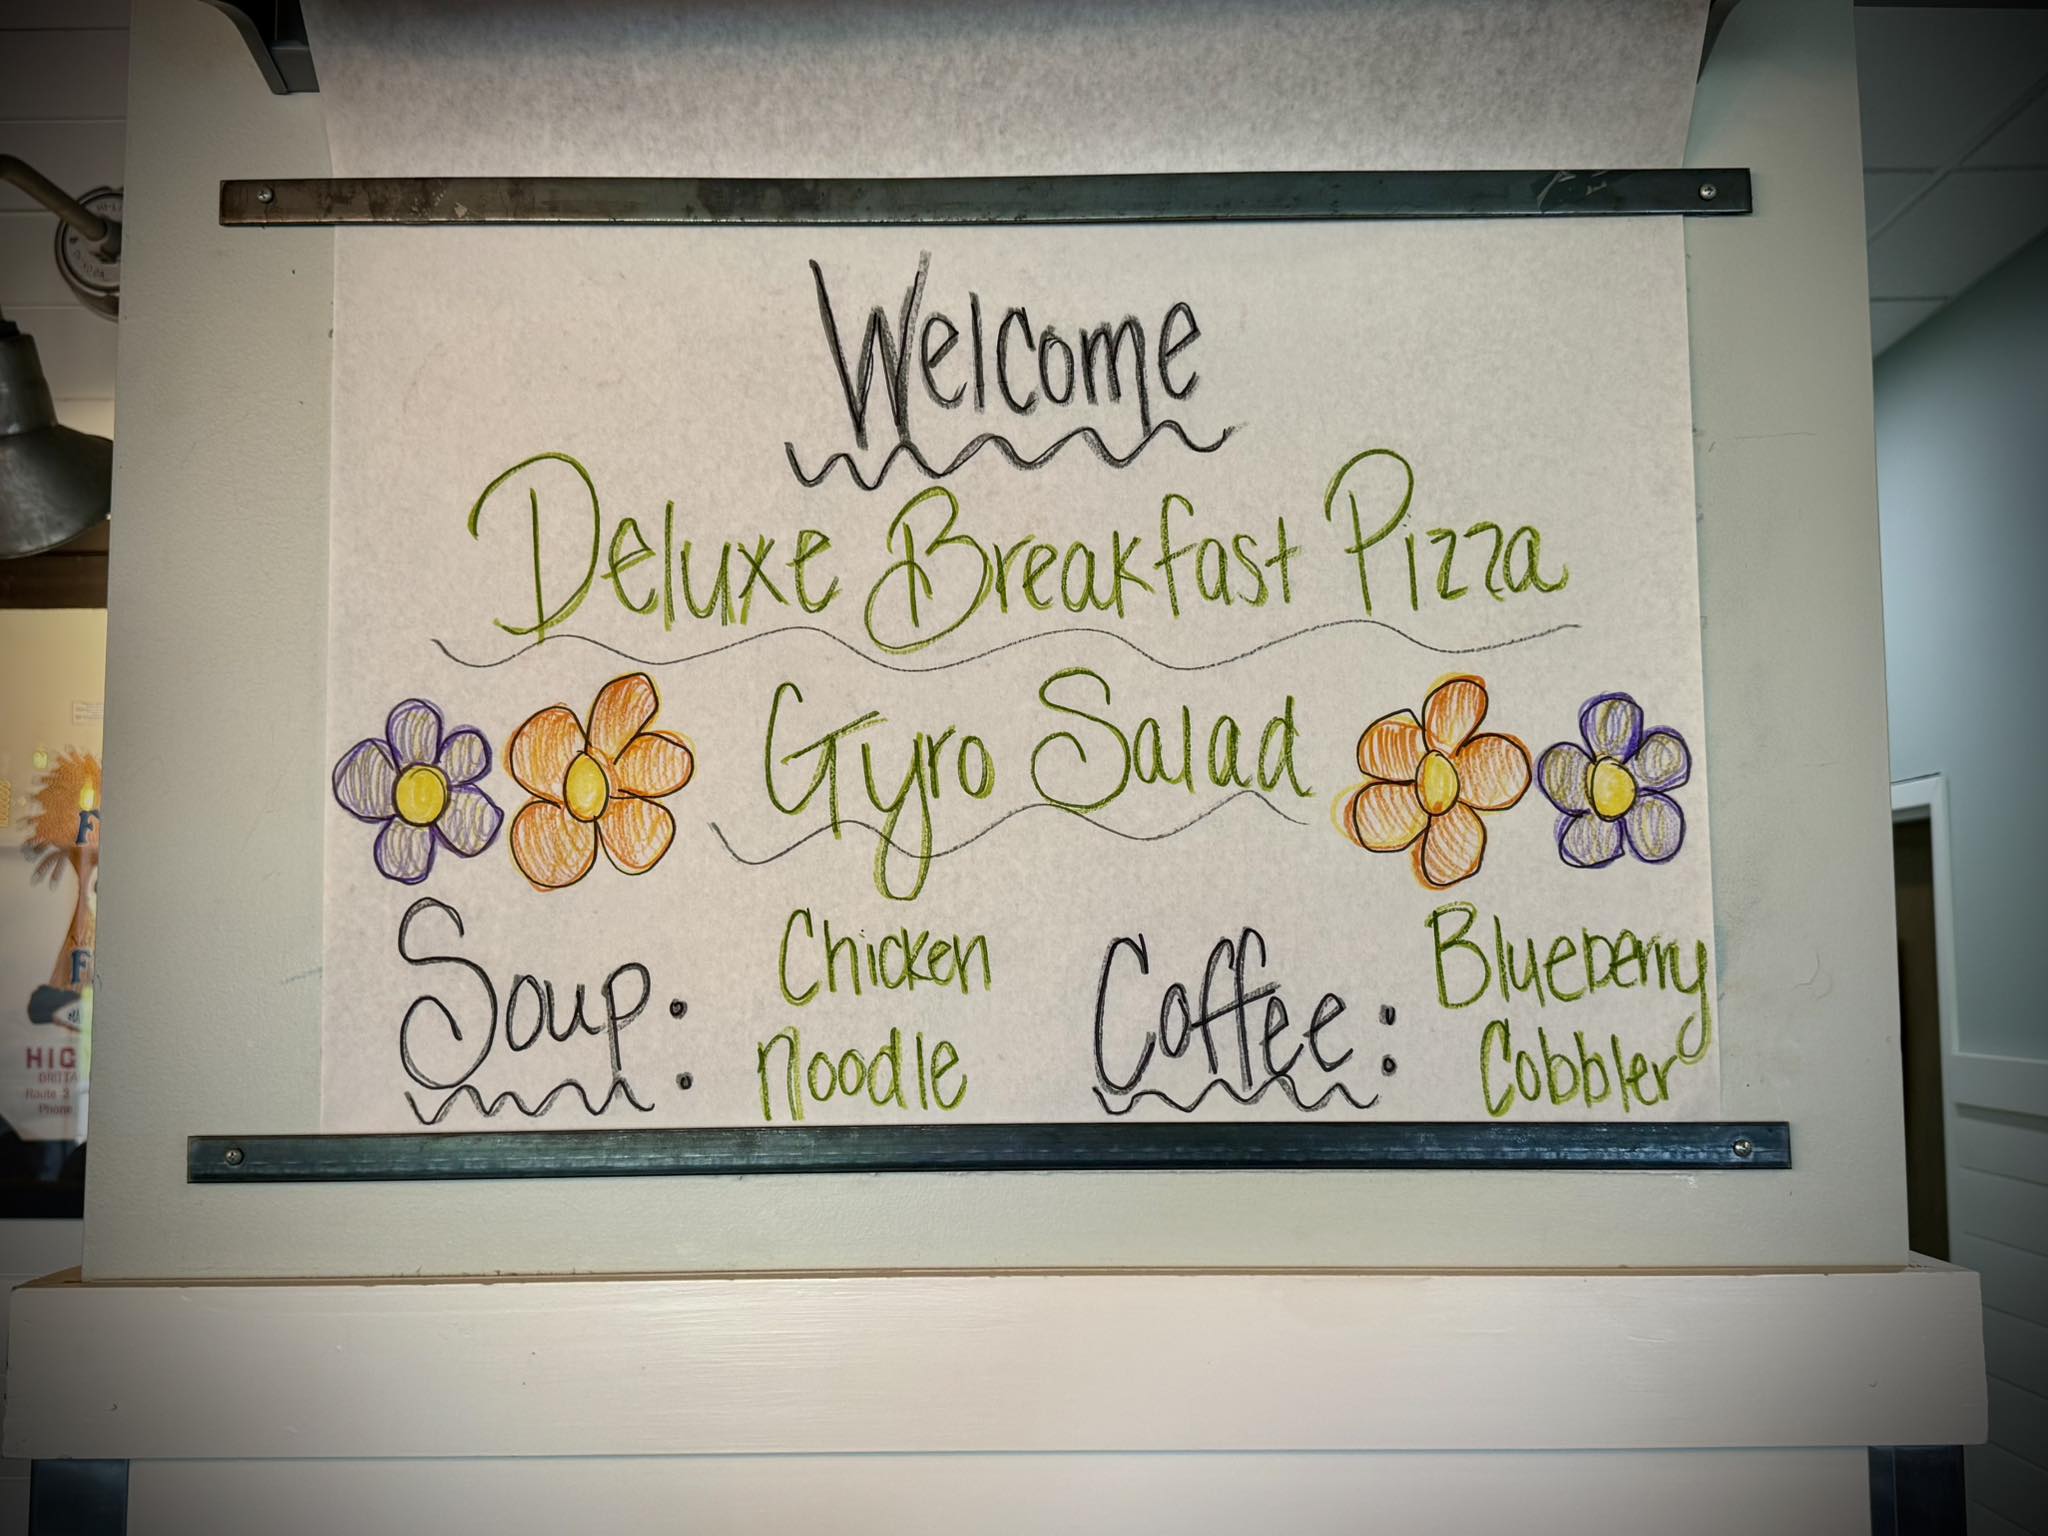 Welcome
Deluxe Breakfast Pizza
Gyro Salad
Soup: Chicken Noodle
Coffee: Blueberry Cobbler
HIG
Route 3
Phone